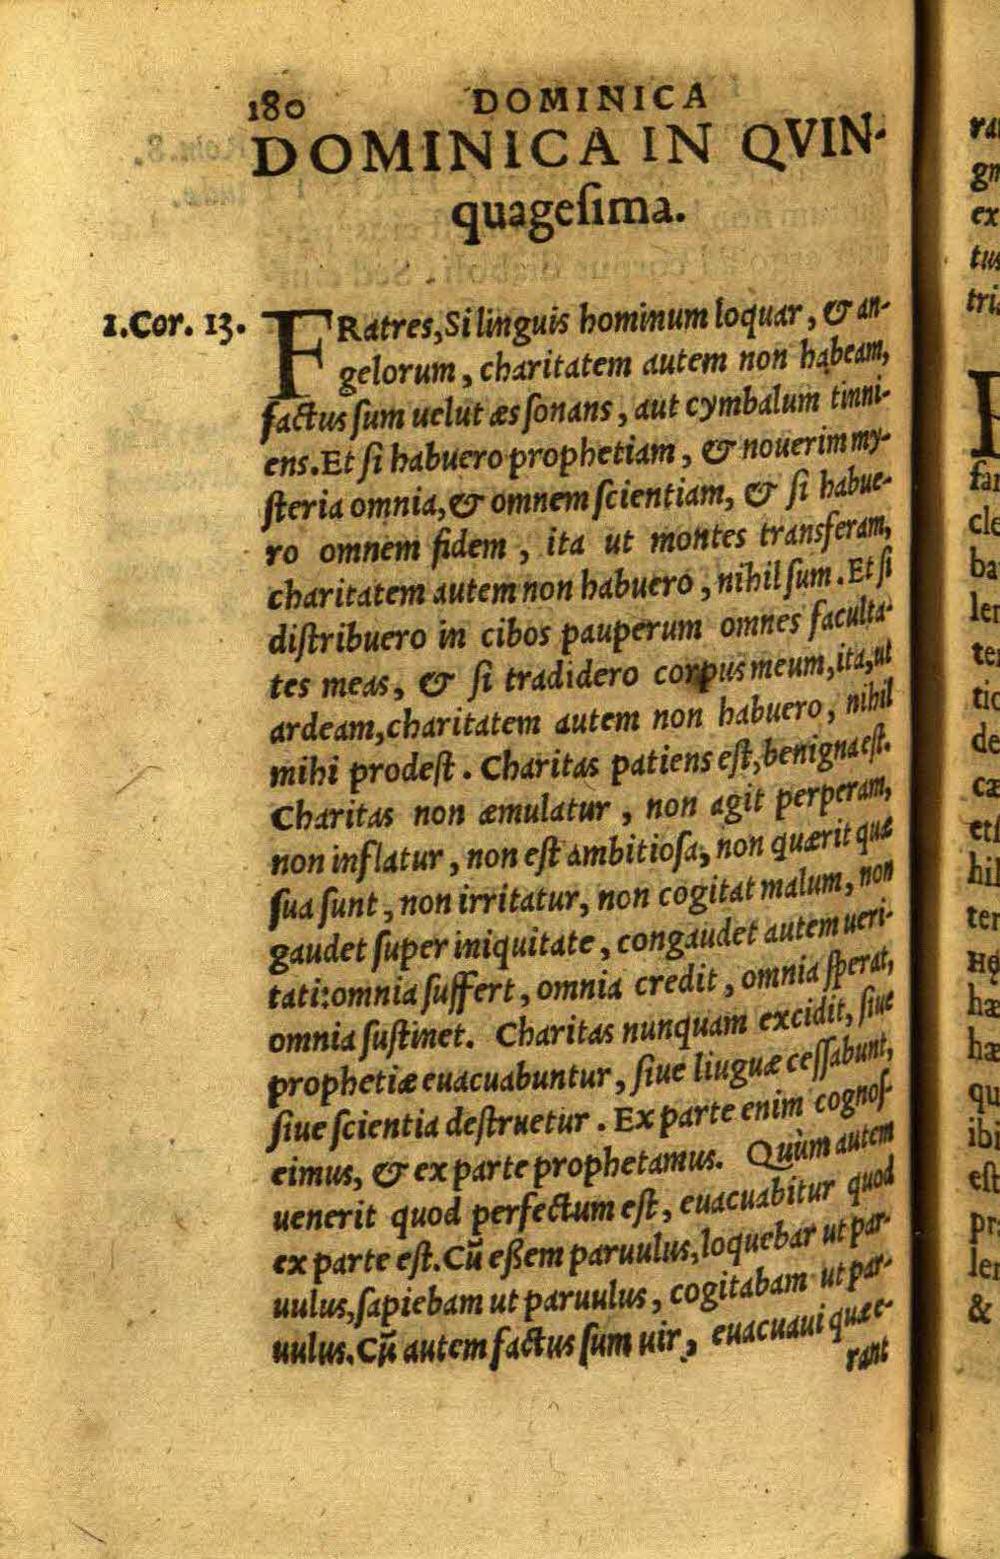 180 DOMINICA
DOMINICA IN QVIN-
quageſima.
1.Cor. 13.
FRatres, Si linguis hominum loquar, & an-
gelorum, charitatem autem non habeam,
factus ſum uelut æs ſonans, aut cymbalum tinni-
ens. Et ſi habuero prophetiam, & nouerim my-
ſteria omnia, & omnem ſcientiam, & ſi habue-
ro omnem fidem, ita ut montes transferam,
charitatem autem non habuero, nihil ſum. Et ſi
diſtribuero in cibos pauperum omnes faculta-
tes meas, & ſi tradidero corpus meum, ita, ut
ardeam, charitatem autem non habuero, nihil
mihi prodeſt. Charitas patiens eſt, benigna eſt.
Charitas non æmulatur, non agit perperam,
non inflatur, non eſt ambitioſa, non quærit quæ
ſua ſunt, non irritatur, non cogitat malum, non
gaudet ſuper iniquitate, congaudet autem ueri-
tati: omnia ſuffert, omnia credit, omnia ſperat,
omnia ſuſtinet. Charitas nunquam excidit, ſiue
prophetiæ euacuabuntur, ſiue liuguæ ceſſabunt,
ſiue ſcientia deſtruetur. Ex parte enim cognoſ-
cimus, & ex parte prophetamus. Quùm autem
uenerit quod perfectum eſt, euacuabitur quod
ex parte eſt. Cũ eßem paruulus, loquebar ut par-
uulus, ſapiebam ut paruulus, cogitabam ut par-
uulus. Cũ autem factus ſum uir, euacuaui quæ e-
rant
ra
gn
ex
tus
tri
far
cle
ba
ler
ter
tic
de
cæ
etl
hil
ter
Hę
hæ
hæ
qu
ibi
eſt
pr
ler
&